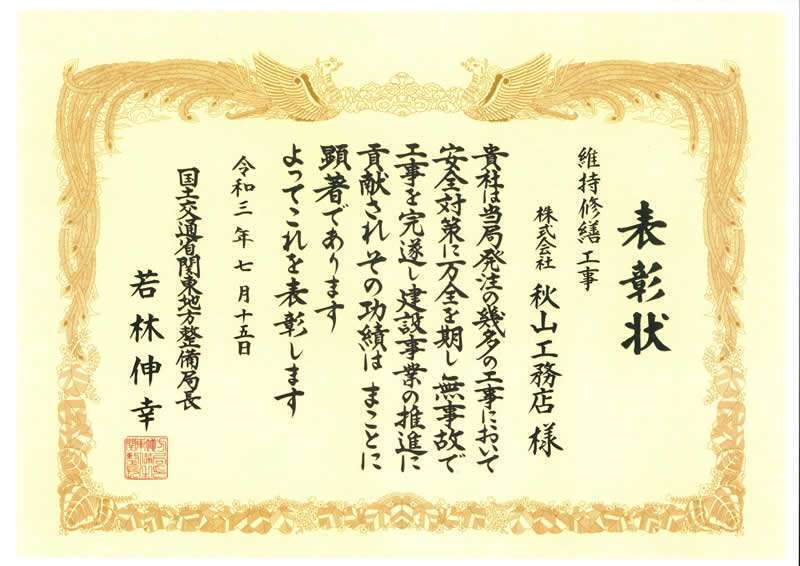 表彰状
維持修繕工事
株式会社 秋山工務店 様
貴社は当局発注の幾多の工事において
安全対策に万全を期し無事故で
工事を完遂し建設事業の推進に
貢献されその功績は まことに
顕著であります
よってこれを表彰します
令和三年七月十五日
国土交通省関東地方整備局長
若林伸幸